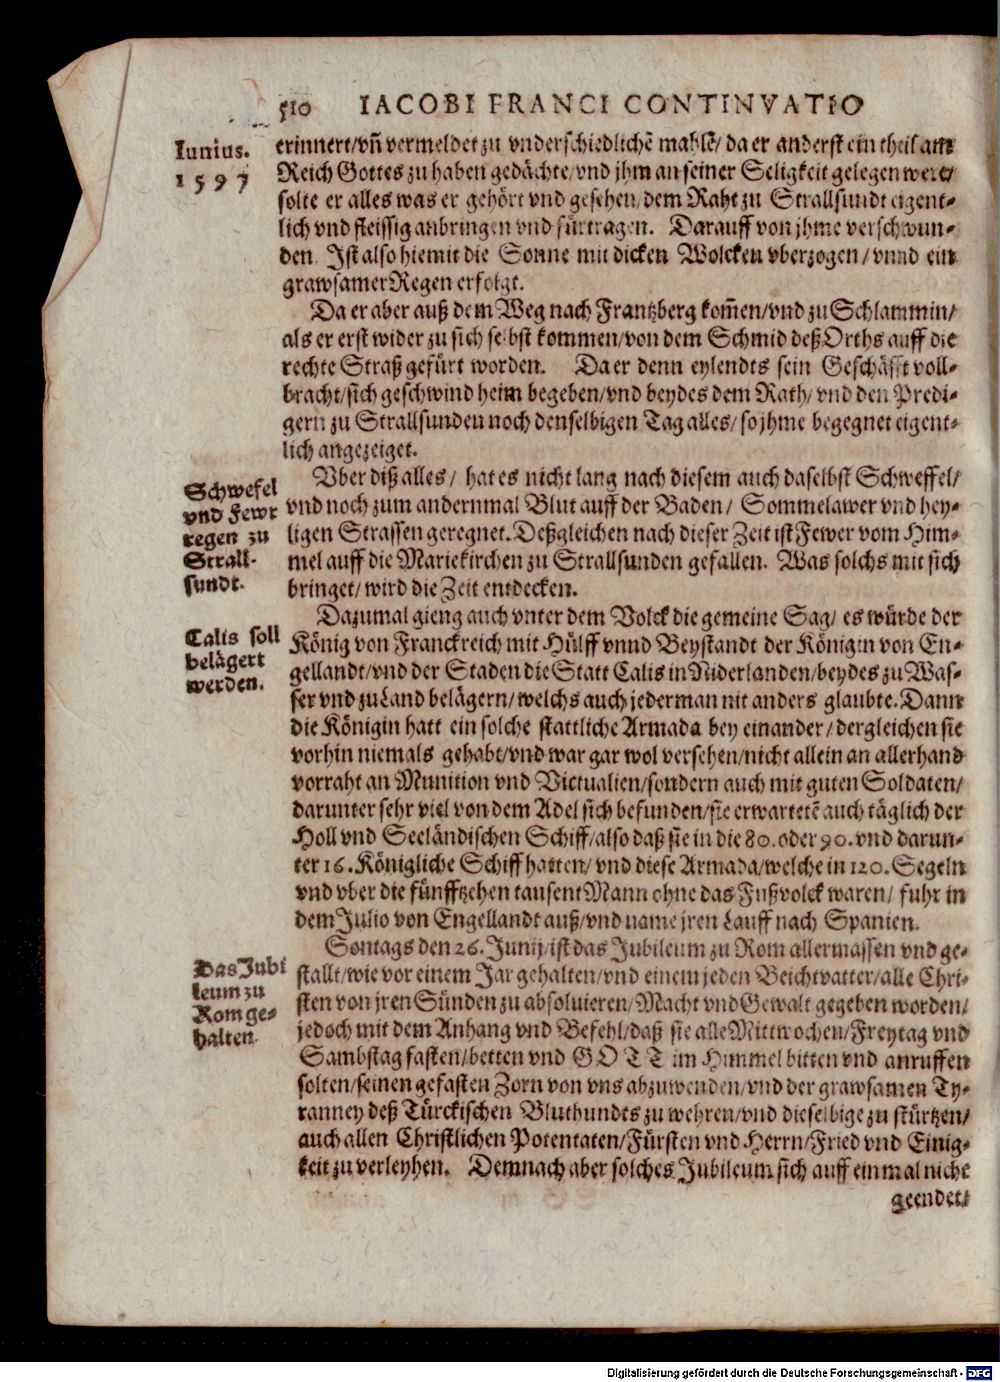 510 IACOBI FRANCI CONTINVATIO
Iunius.
1597
erinnert/vn̄ vermeldet zu vnderschiedlichē mahlē/ da er anderst ein theil am
Reich Gottes zu haben gedächte/vnd jhm an seiner Seligkeit gelegen were/
solte er alles was er gehört vnd gesehen/dem Raht zu Strallsundt eigent-
lich vnd fleissig anbringen vnd fürtragen. Darauff von jhme verschwun-
den. Ist also hiemit die Sonne mit dicken Wolcken vberzogen/vnnd ein
grawsamer Regen erfolgt.
Da er aber auß dem Weg nach Frantzberg kom̄en/vnd zu Schlammin/
als er erst wider zu sich selbst kommen/von dem Schmid deß Orths auff die
rechte Straß gefürt worden. Da er denn eylendts sein Geschäfft voll-
bracht/sich geschwind heim begeben/vnd beydes dem Rath/ vnd den Predi-
gern zu Strallsunden noch denselbigen Tag alles/ so jhme begegnet eigent-
lich angezeiget.
Schwefel
vnd Fewr
regen zu
Strall-
sundt.
Vber diß alles/ hat es nicht lang nach diesem auch daselbst Schweffel/
vnd noch zum andernmal Blut auff der Baden/ Sommelawer vnd hey-
ligen Strassen geregnet. Deßgleichen nach dieser Zeit ist Fewer vom Him-
mel auff die Mariekirchen zu Strallsunden gefallen. Was solchs mit sich
bringet/ wird die Zeit entdecken.
Calis soll
belägert
werden.
Dazumal gieng auch vnter dem Volck die gemeine Sag/ es würde der
König von Franckreich mit Hülff vnnd Beystandt der Königin von En-
gellandt/vnd der Staden die Statt Calis in Niderlanden/beydes zu Was-
ser vnd zu Land belägern/welchs auch jederman nit anders glaubte. Dann
die Königin hatt ein solche stattliche Armada bey einander/dergleichen sie
vorhin niemals gehabt/vnd war gar wol versehen/nicht allein an allerhand
vorraht an Munition vnd Victualien/sondern auch mit guten Soldaten/
darunter sehr viel von dem Adel sich befunden/sie erwartetē auch täglich der
Holl vnd Seeländischen Schiff/also daß sie in die 80. oder 90. vnd darun-
ter 16. Königliche Schiff hatten/ vnd diese Armada/welche in 120. Segeln
vnd vber die fünfftzehen tausent Mann ohne das Fußvolck waren/ fuhr in
dem Julio von Engellandt auß/vnd name jren Lauff nach Spanien.
Das Jubi
leum zu
Rom ge-
halten.
Sontags den 26. Junij/ist das Jubileum zu Rom allermassen vnd ge-
stallt/wie vor einem Jar gehalten/vnd einem jeden Beichtvatter/alle Chri-
sten von jren Sünden zu absoluieren/Macht vnd Gewalt gegeben worden/
jedoch mit dem Anhang vnd Befehl/daß sie alle Mittwochen/Freytag vnd
Sambstag fasten/betten vnd GOTT im Himmel bitten vnd anruffen
solten/seinen gefasten Zorn von vns abzuwenden/vnd der grawsamen Ty-
ranney deß Türckischen Bluthundts zu wehren/vnd dieselbige zu stürtzen/
auch allen Christlichen Potentaten/Fürsten vnd Herrn/Fried vnd Einig-
keit zu verleyhen. Demnach aber solches Jubileum sich auff einmal nicht
geendet/
Digitalisierung gefördert durch die Deutsche Forschungsgemeinschaft - DFG